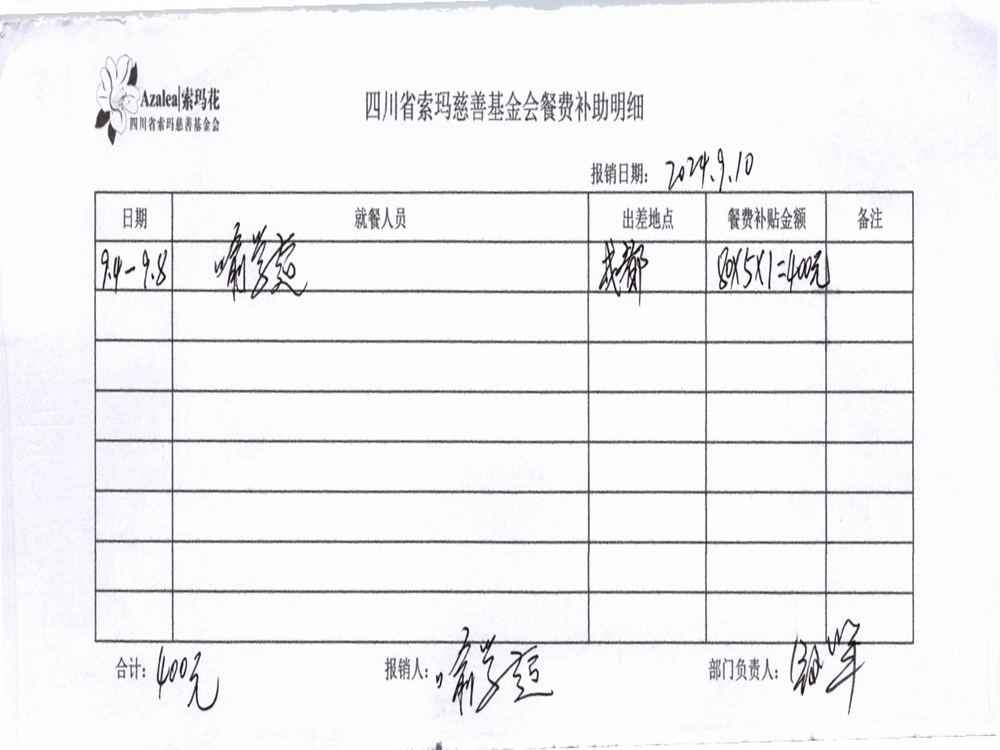 Azalea|索玛花
四川省索玛慈善基金会
四川省索玛慈善基金会餐费补助明细
报销日期: 2024.9.10
日期 就餐人员 出差地点 餐费补贴金额 备注
9.4-9.8 喻学 成都 80×5×1=400元
合计: 400元 报销人: 喻学 部门负责人: